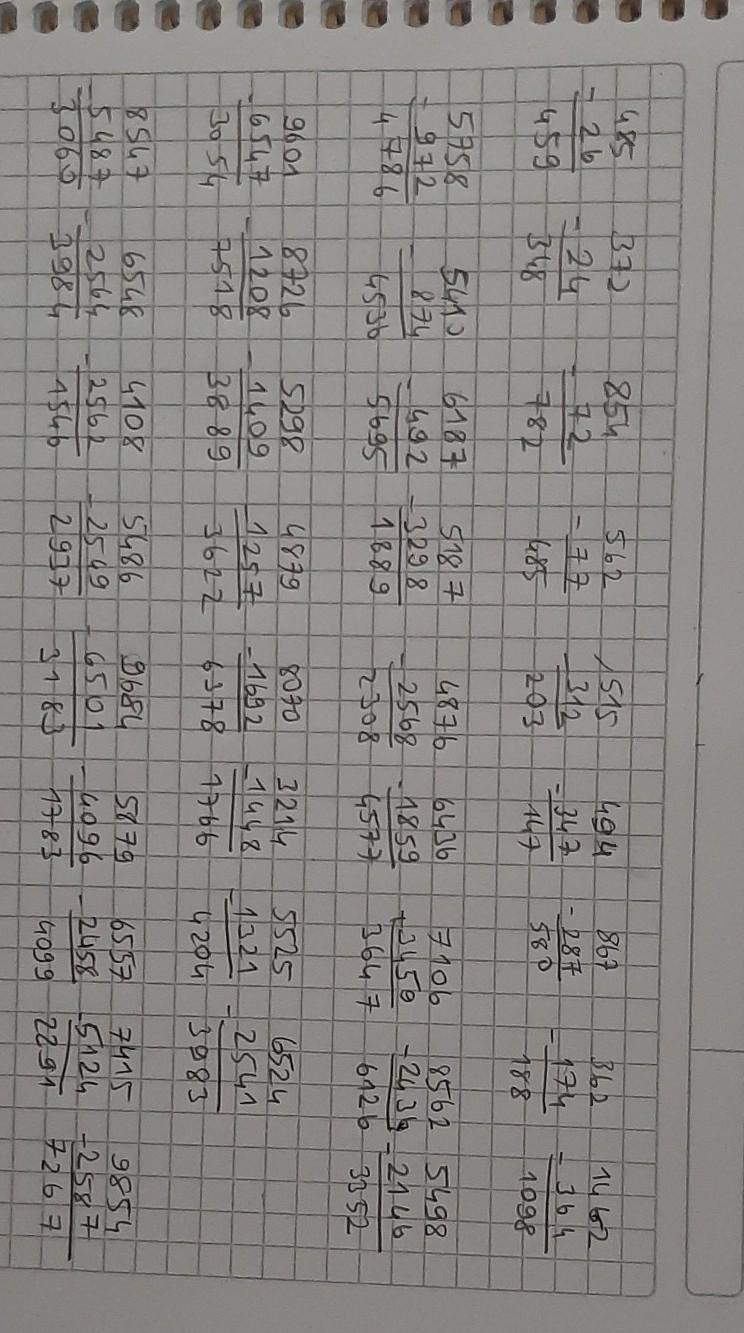 485 372 854 562 515 494 867 362 1462
- 26 - 24 - 72 - 77 - 312 - 347 - 287 - 174 - 364
459 348 782 485 203 147 580 188 1098
5758 5410 6187 5187 4876 6436 7106 8562 5498
- 972 - 874 - 492 - 3298 - 2568 - 1859 - 3459 - 2436 - 2146
4786 4536 5695 1889 2308 4577 3647 6126 3352
9601 8726 5298 4879 8070 3214 5525 6524
- 6547 - 1208 - 1409 - 1257 - 1692 - 1448 - 1321 - 2541
3054 7518 3889 3622 6378 1766 4204 3983
8547 6548 4108 5486 9684 5879 6557 7415 9854
- 5487 - 2564 - 2562 - 2549 - 6501 - 4096 - 2458 - 5124 - 2587
3060 3984 1546 2937 3183 1783 4099 2291 7267